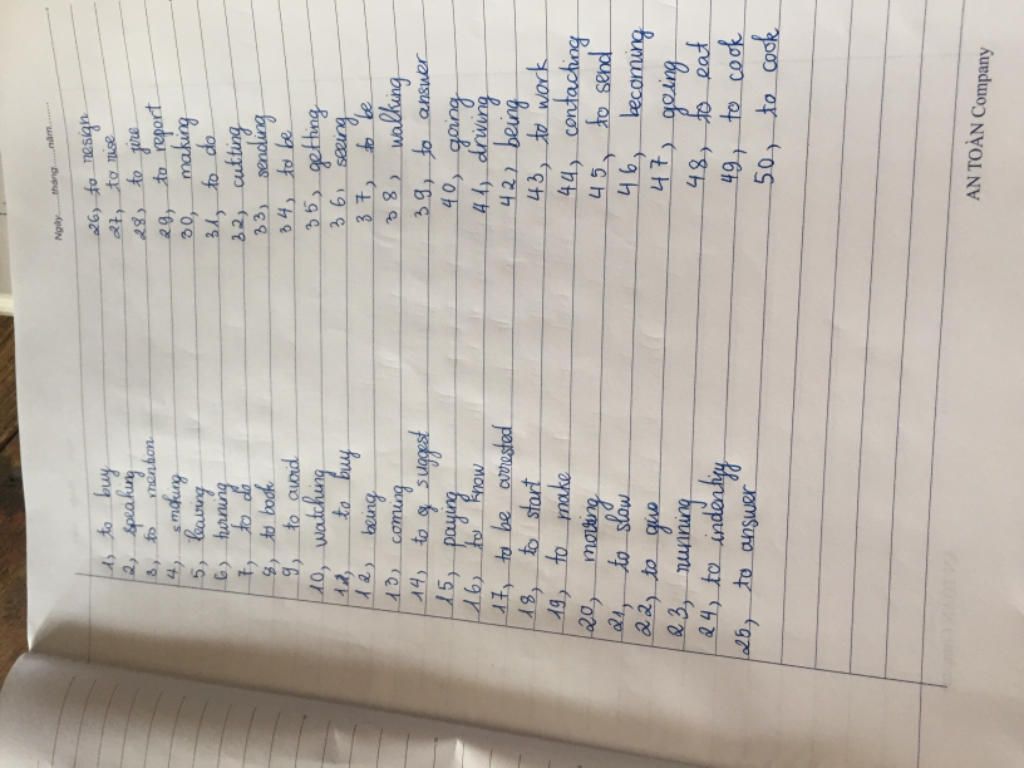 Ngày......tháng.....năm.......
1, to buy
2, speaking
3, to mention
4, smoking
5, leaving
6, turning
7, to do
8, to book
9, to avoid
10, watching
11, to buy
12, being
13, coming
14, to suggest
15, paying
16, to know
17, to be arrested
18, to start
19, to make
20, moving
21, to slow
22, to give
23, running
24, to indentify
25, to answer
26, to resign
27,
28, to
29, to report
30, making
31, to do
32, cutting
33, sending
34, to be
35, getting
36, seeing
37, to be
38, walking
39, to answer
40, going
41, driving
42, being
43, to work
44, contaching
45, to send
46, becoming
47, going
48, to eat
49, to cook
50, to cook
AN TOÀN Company